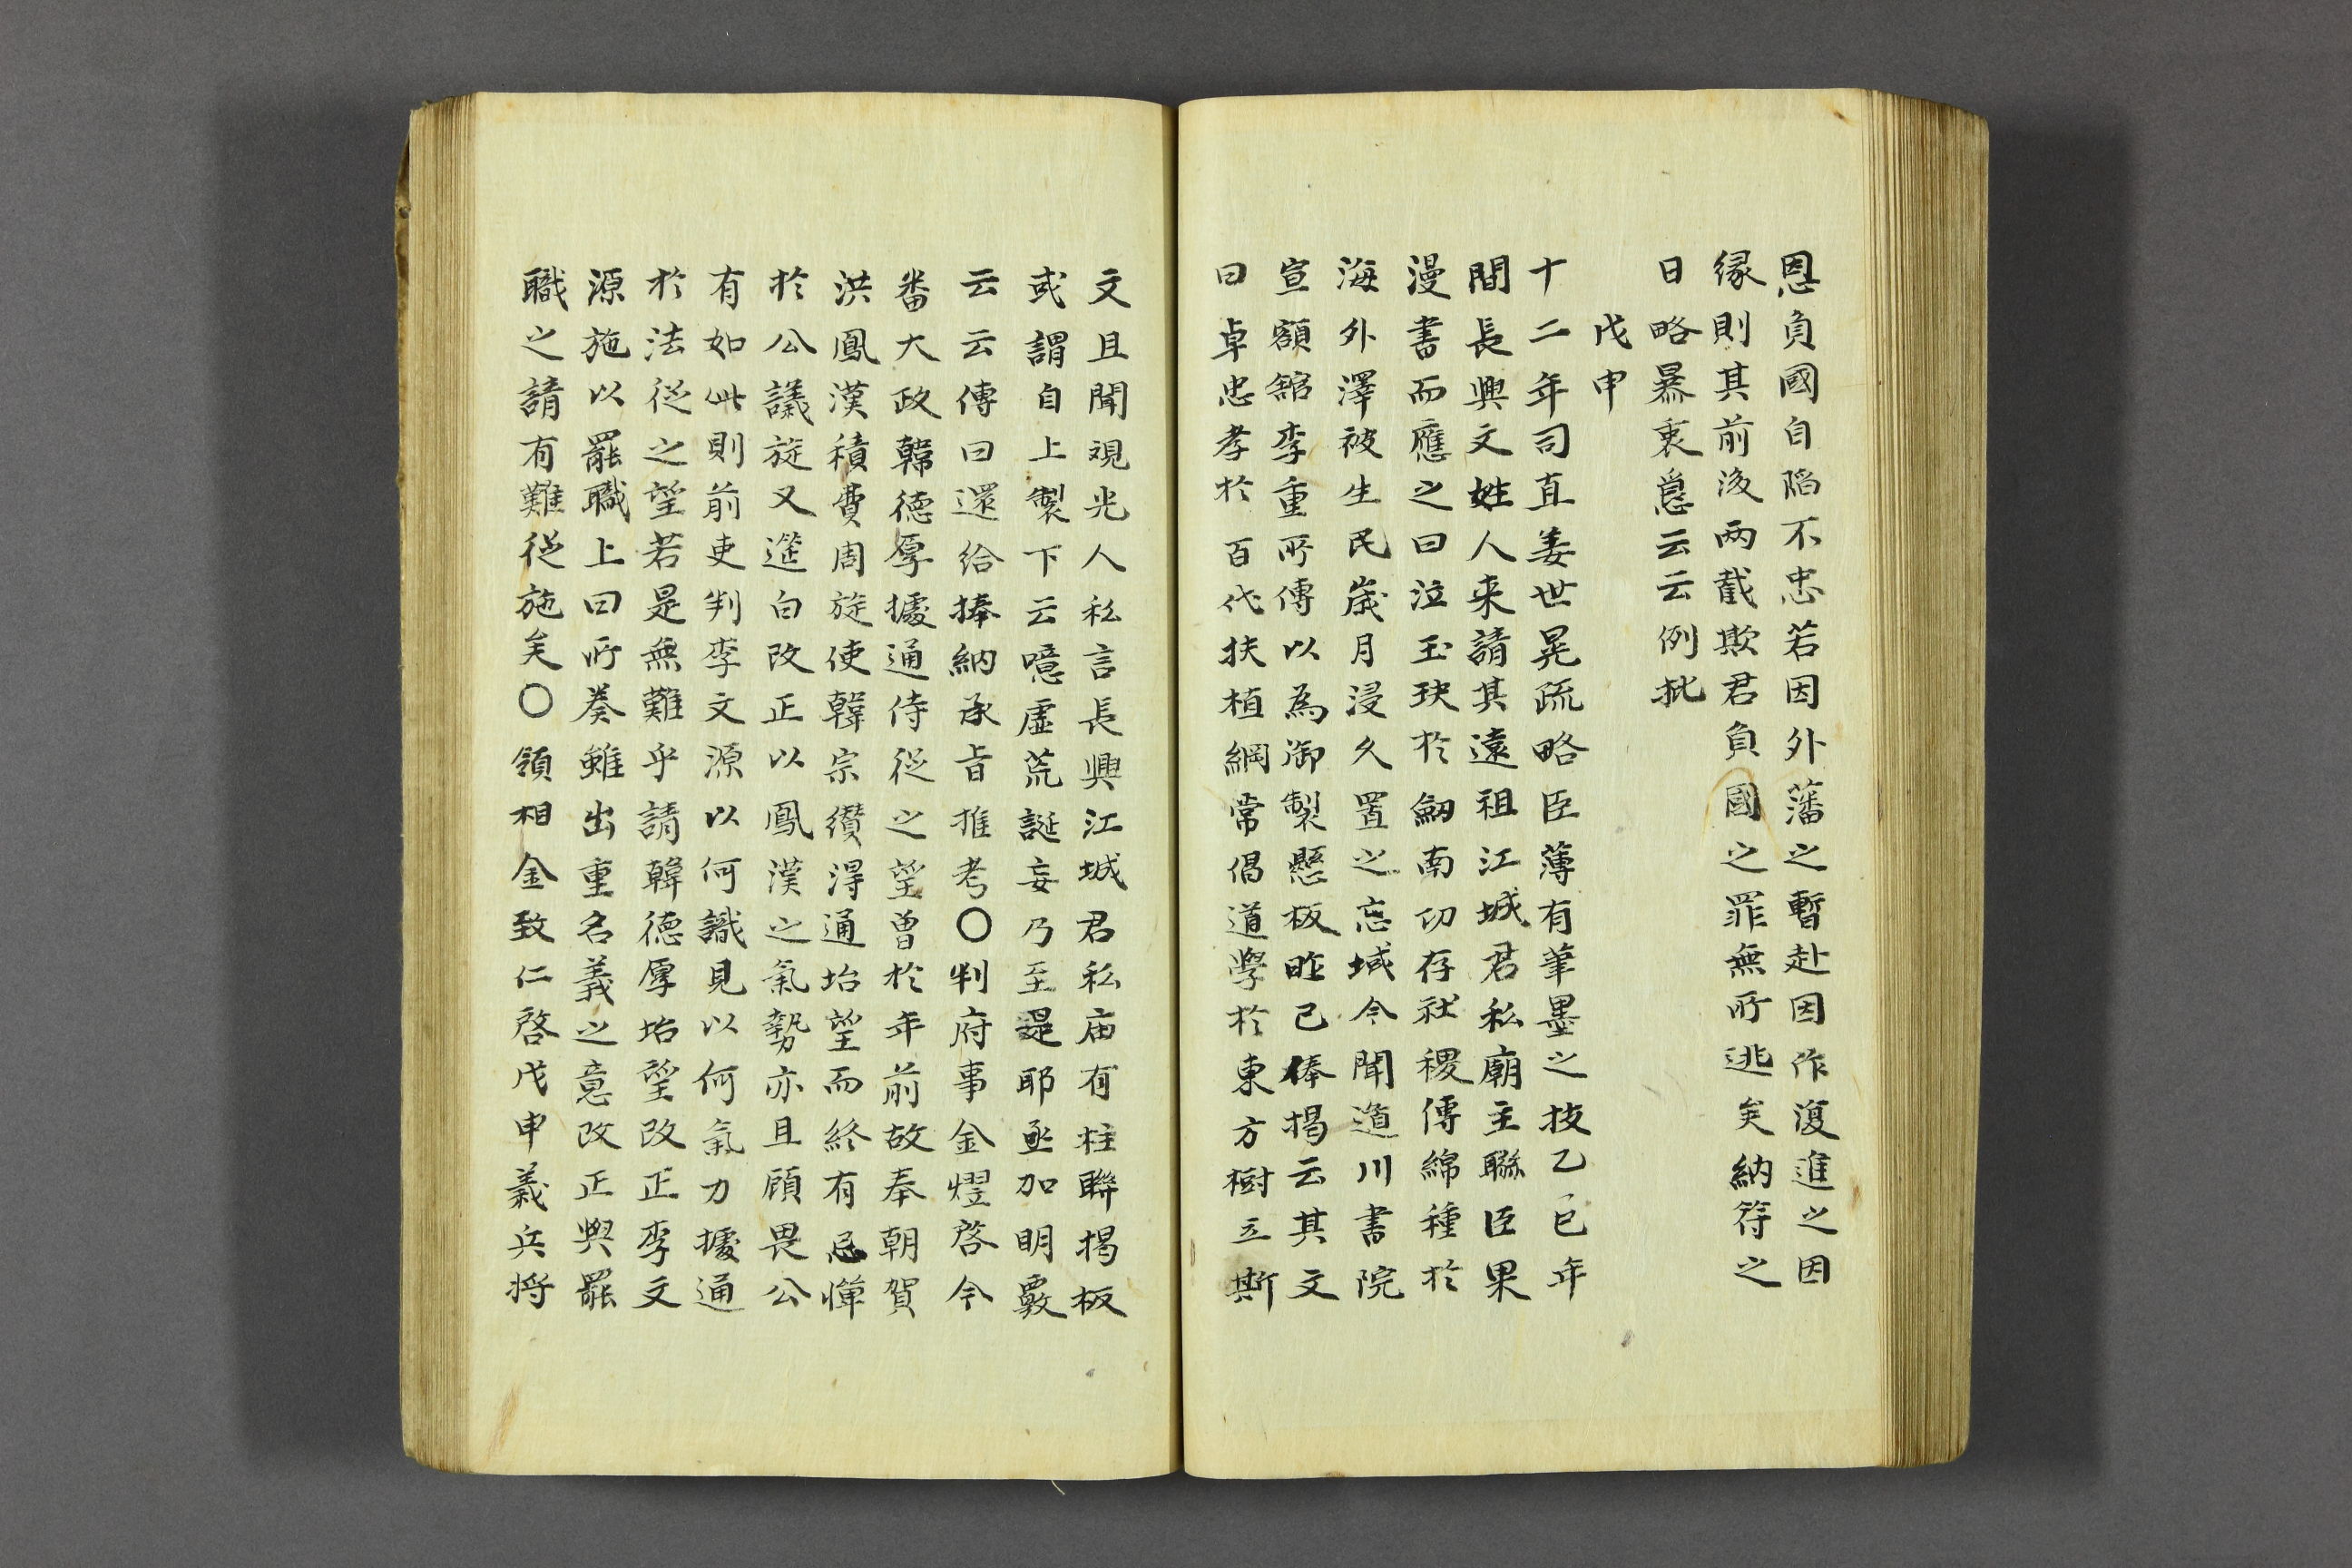 恩負國自陷不忠若因外藩之暫赴因作復進之因
縁則其前後两截欺君負國之罪無所逃矣納符之
日略暴衷悃云云例批
戊申
十二年司直姜世晃疏略臣薄有筆墨之技乙巳年
間長興文姓人来請其遠祖江城君私廟主聯臣果
漫書而應之曰泣玉玦於劒南功存社稷傳綿種於
海外澤被生民歳月浸久置之忘域今聞道川書院
宣額舘李重所傳以為御製懸板昨已俸揭云其文
曰卓忠孝於百代扶植綱常倡道學於東方樹立斯
文且聞覌光人私言長興江城君私庙有柱聯揭板
或謂自上製下云噫虛荒誕妄乃至是耶亟加明覈
云云傳曰還給捧納承旨推考〇判府事金熤啓今
番大政韓德厚擬通侍從之望曾於年前故奉朝賀
洪鳳漢積費周旋使韓宗纘淂通坮望而終有忌憚
於公議旋又遂白改正以鳳漢之氣勢亦且顧畏公
有如此則前吏判李文源以何識見以何氣力擬通
於法從之望若是無難乎請韓德厚坮望改正李文
源施以罷職上曰所奏雖出重名義之意改正與罷
職之請有難從施矣〇領相金致仁啓戊申義兵将